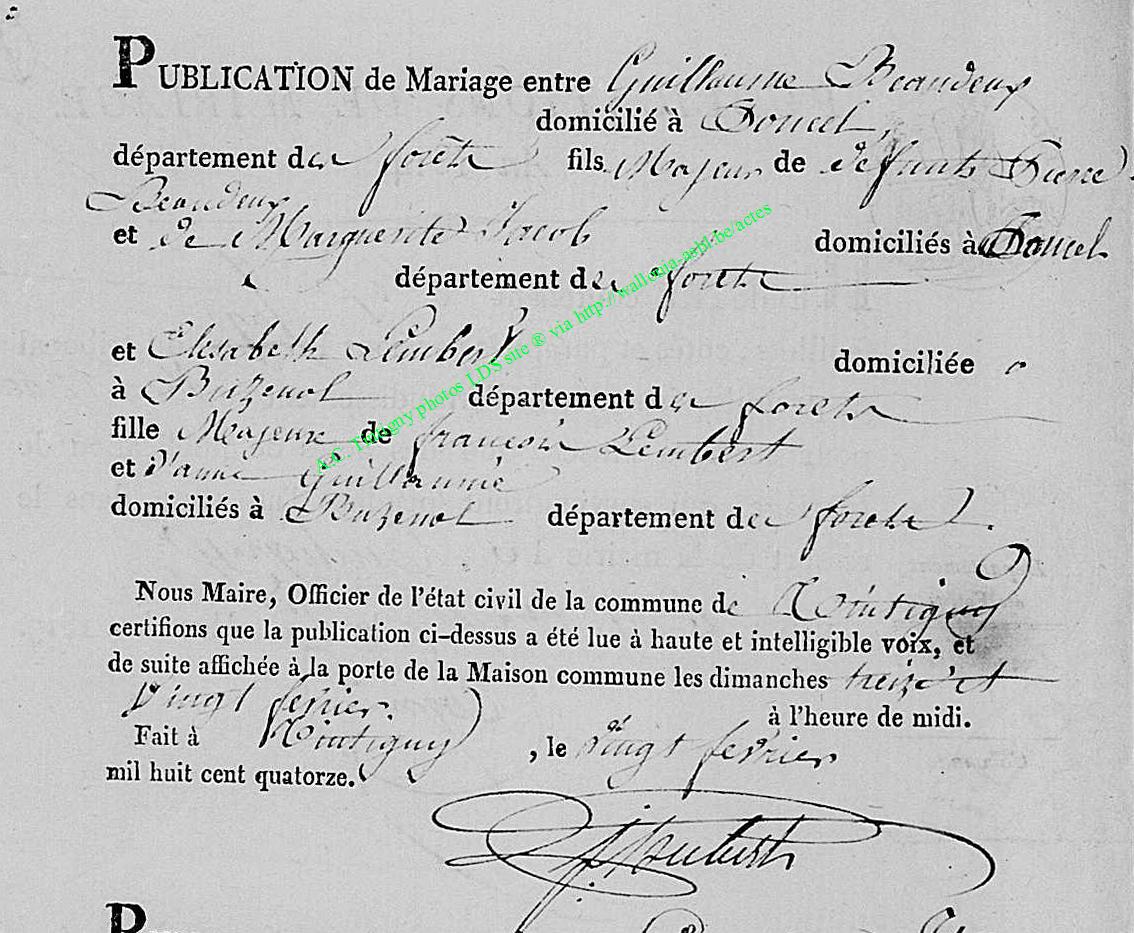 PUBLICATION de Mariage entre Guillaume Beaudeux
domicilié à Poncel,
département des forêts fils Majeur de défunts Pierre
Beaudeux
et de Marguerite Jacob domiciliés à Poncel
département des forêts
et Elisabeth Lembert domiciliée
à Buzenol département des forêts
fille Majeure de françois Lembert
et d'anne Guillaume
domiciliés à Buzenol département des forêts.
Nous Maire, Officier de l'état civil de la commune de
certifions que la publication ci-dessus a été lue à haute et intelligible voix, et
de suite affichée à la porte de la Maison commune les dimanches treize et
vingt fevrier. à l'heure de midi.
Fait à , le vingt fevrier
mil huit cent quatorze.
P
A.C. Tintigny photos LDS site ® via http://wallonia-asbl.be/actes